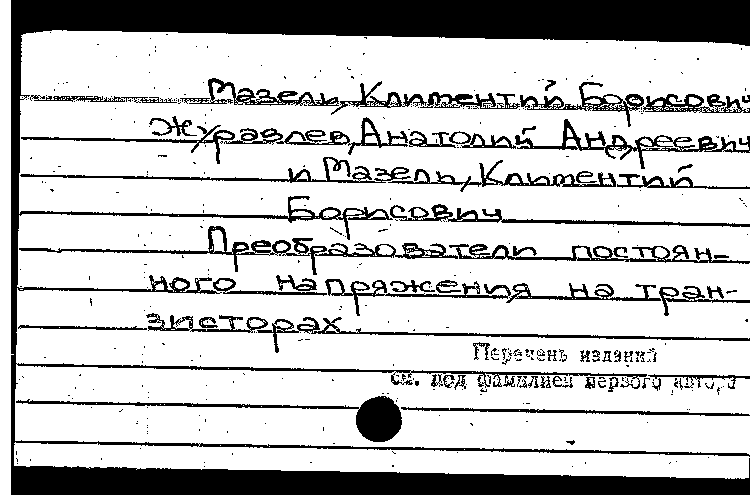 Мазель, Климентий Борисович
Журавлев, Анатолий Андреевич
и Мазель, Климентий
Борисович
Преобразователи постоян-
ного напряжения на тран-
зисторах.
Перечень изданий
см. под фамилией первого автора